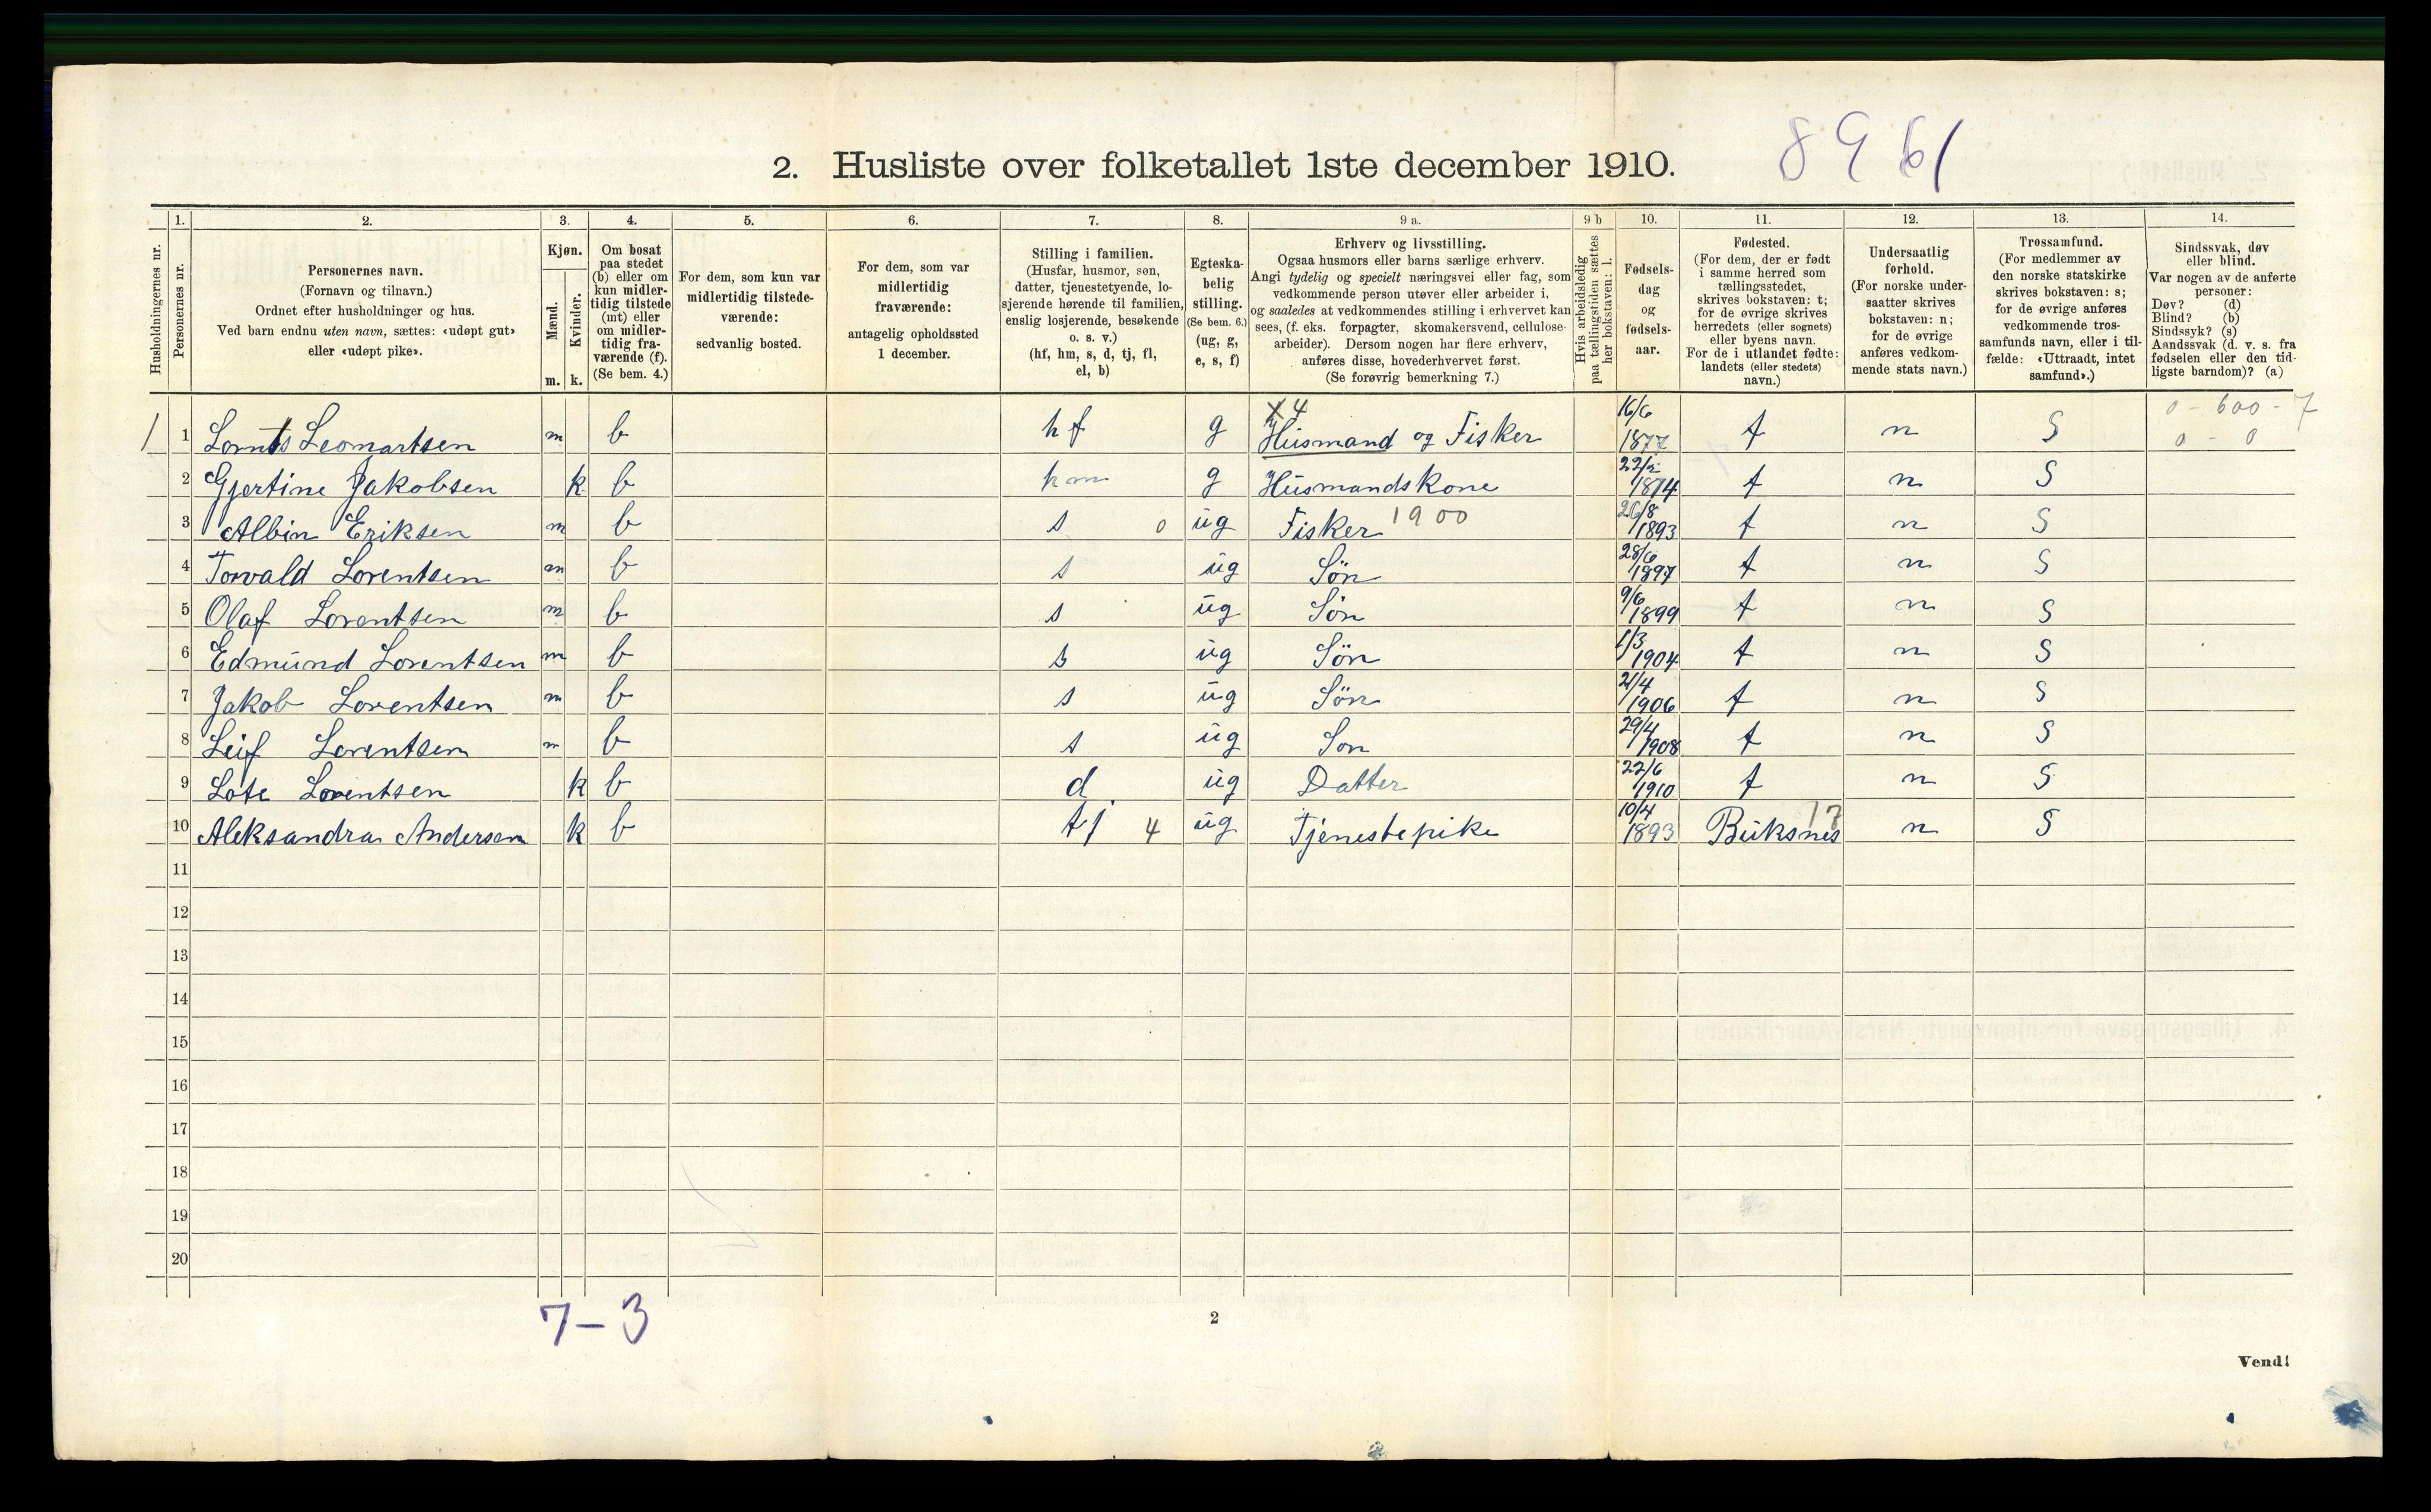 8961
2. Husliste over folketallet 1ste december 1910.
1. 2. 3. 4. 5. 6. 7. 8. 9 a. 9 b 10. 11. 12. 13. 14.
Husholdningernes nr.
Personernes nr.
Personernes navn.
(Fornavn og tilnavn.)
Ordnet efter husholdninger og hus.
Ved barn endnu uten navn, sættes: «udøpt gut»
eller «udøpt pike».
Kjøn.
Mænd.
Kvinder.
m. k.
Om bosat
paa stedet
(b) eller om
kun midler-
tidig tilstede
(mt) eller
om midler-
tidig fra-
værende (f).
(Se bem. 4.)
For dem, som kun var
midlertidig tilstede-
værende:
sedvanlig bosted.
For dem, som var
midlertidig
fraværende:
antagelig opholdssted
1 december.
Stilling i familien.
(Husfar, husmor, søn,
datter, tjenestetyende, lo-
sjerende hørende til familien,
enslig losjerende, besøkende
o. s. v.)
(hf, hm, s, d, tj, fl,
el, b)
Egteska-
belig
stilling.
(Se bem. 6.)
(ug, g,
e, s, f)
Erhverv og livsstilling.
Ogsaa husmors eller barns særlige erhverv.
Angi tydelig og specielt næringsvei eller fag, som
vedkommende person utøver eller arbeider i,
og saaledes at vedkommendes stilling i erhvervet kan
sees, (f. eks. forpagter, skomakersvend, cellulose-
arbeider). Dersom nogen har flere erhverv,
anføres disse, hovederhvervet først.
(Se forøvrig bemerkning 7.)
Hvis arbeidsledig
paa tællingstiden sættes
her bokstaven: l.
Fødsels-
dag
og
fødsels-
aar.
Fødested.
(For dem, der er født
i samme herred som
tællingsstedet,
skrives bokstaven: t;
for de øvrige skrives
herredets (eller sognets)
eller byens navn.
For de i utlandet fødte:
landets (eller stedets)
navn.)
Undersaatlig
forhold.
(For norske under-
saatter skrives
bokstaven: n;
for de øvrige
anføres vedkom-
mende stats navn.)
Trossamfund.
(For medlemmer av
den norske statskirke
skrives bokstaven: s;
for de øvrige anføres
vedkommende tros-
samfunds navn, eller i til-
fælde: «Uttraadt, intet
samfund».)
Sindssvak, døv
eller blind.
Var nogen av de anførte
personer:
Døv? (d)
Blind? (b)
Sindssyk? (s)
Aandssvak (d. v. s. fra
fødselen eller den tid-
ligste barndom)? (a)
X 4 0 - 600 - 7
1 1 Lornts Leomartsen m b hf g Husmand og Fisker 16/6 1877 t n S 0 - 0
2 Gjertine Jakobsen k b hm g Husmandskone 22/2 1874 t n S
3 Albin Eriksen m b s 0 ug Fisker 1900 26/8 1893 t n S
4 Torvald Lorentsen m b s ug Sön 28/6 1897 t n S
5 Olaf Lorentsen m b s ug Sön 9/6 1899 t n S
6 Edmund Lorentsen m b s ug Sön 1/3 1904 t n S
7 Jakob Lorentsen m b s ug Sön 21/4 1906 t n S
8 Leif Lorentsen m b s ug Son 29/4 1908 t n S
9 Lote Lorentsen k b d ug Datter 22/6 1910 t n S
10 Aleksandra Andersen k b tj 4 ug Tjenestepike 10/4 1893 Buksnes n S
11
12
13
14
15
16
17
18
19
20
7-3
2
Vend!